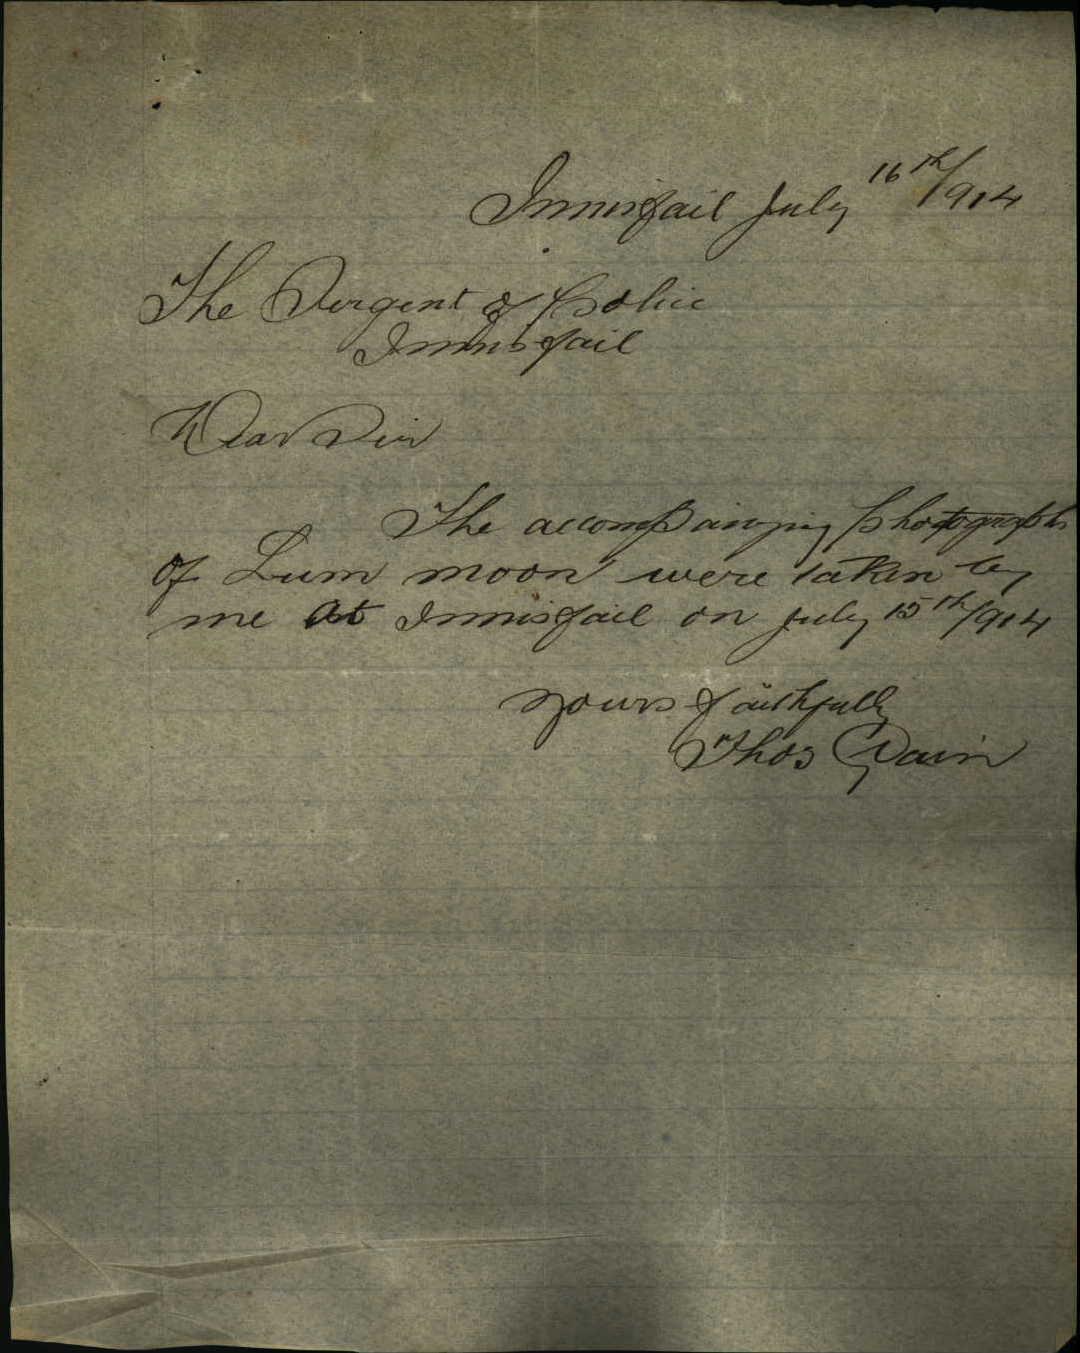 Innisfail July 16th/914
The Sergent of Police
Innisfail
Dear Sir
The accompanying photographs
of Lum moon were taken by
me At Innisfail on July 15th/914
Yours faithfully
Thos